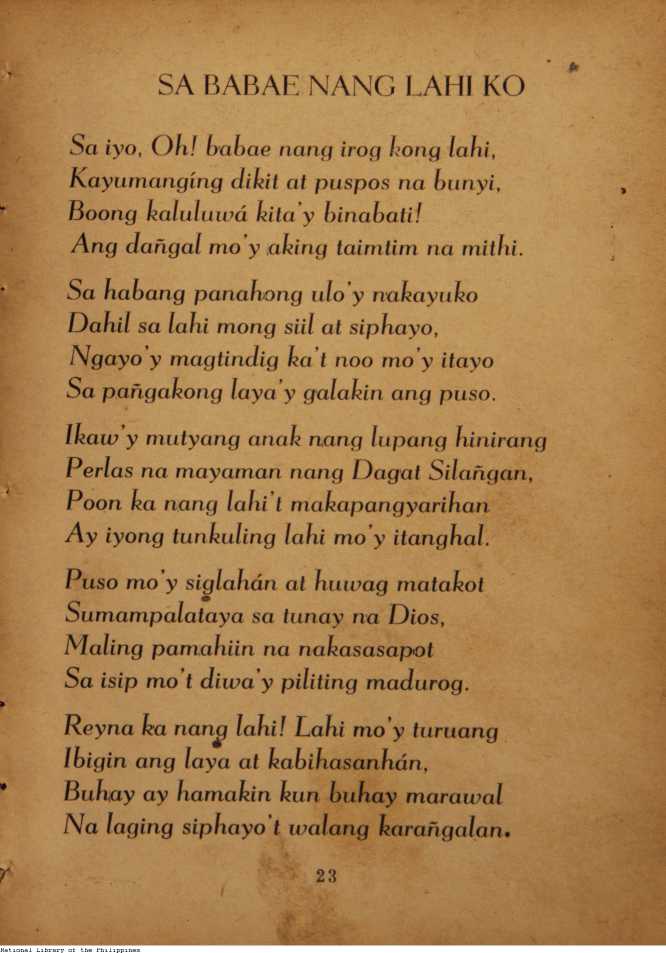 SA BABAE NANG LAHI KO
Sa iyo, Oh! babae nang irog kong lahi,
Kayumangíng dikit at puspos na bunyi,
Boong kaluluwá kita'y binabati!
Ang dañgal mo'y aking taimtim na mithi.
Sa habang panahong ulo'y nakayuko
Dahil sa lahi mong siil at siphayo,
Ngayo'y magtindig ka't noo mo'y itayo
Sa pañgakong laya'y galakin ang puso.
Ikaw'y mutyang anak nang lupang hinirang
Perlas na mayaman nang Dagat Silañgan,
Poon ka nang lahi't makapangyarihan
Ay iyong tunkuling lahi mo'y itanghal.
Puso mo'y siglahán at huwag matakot
Sumampalataya sa tunay na Dios,
Maling pamahiin na nakasasapot
Sa isip mo't diwa'y piliting madurog.
Reyna ka nang lahi! Lahi mo'y turuang
Ibigin ang laya at kabihasanhán,
Buhay ay hamakin kun buhay marawal
Na laging siphayo't walang karañgalan.
23
National Library of the Philippines